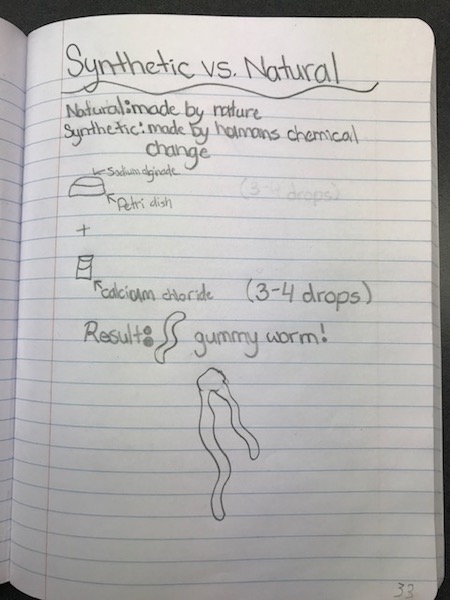 Synthetic vs. Natural
Natural: made by nature
Synthetic: made by humans chemical
change
Sodium alginade
Petri dish
+
calcium chloride (3-4 drops)
Result: gummy worm!
33